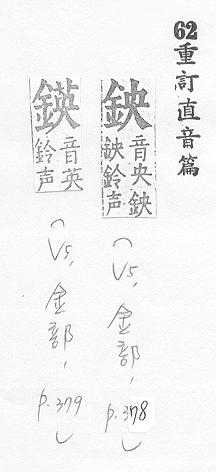 62重訂直音篇
鉠
音央鉠
鉠鈴声
(V5, 金部, p.378)
鍈
音英
鈴声
(V5, 金部, p.379)